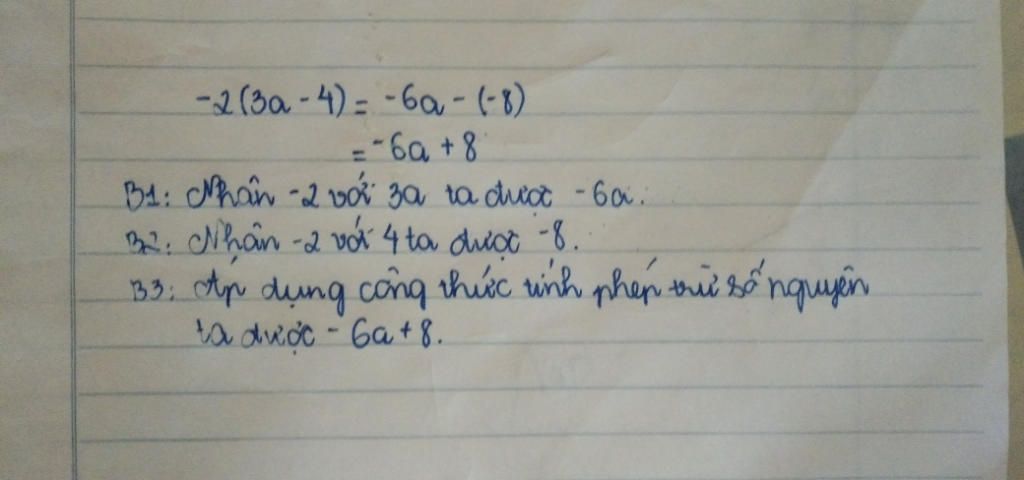 -2(3a - 4) = -6a - (-8)
= -6a + 8
B1: Nhân -2 với 3a ta được -6a.
B2: Nhân -2 với 4 ta được -8.
B3: Áp dụng công thức tính phép trừ số nguyên
ta được - 6a + 8.